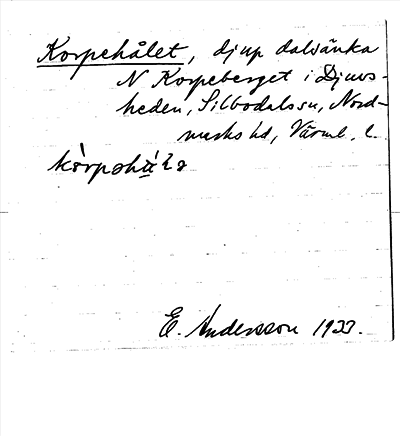 Korpehålet, djup dalsänka
N Korpeberget i Djurs-
heden, Silbodals sn, Nord-
marks hd, Värml. l.
E. Andersson 1933.